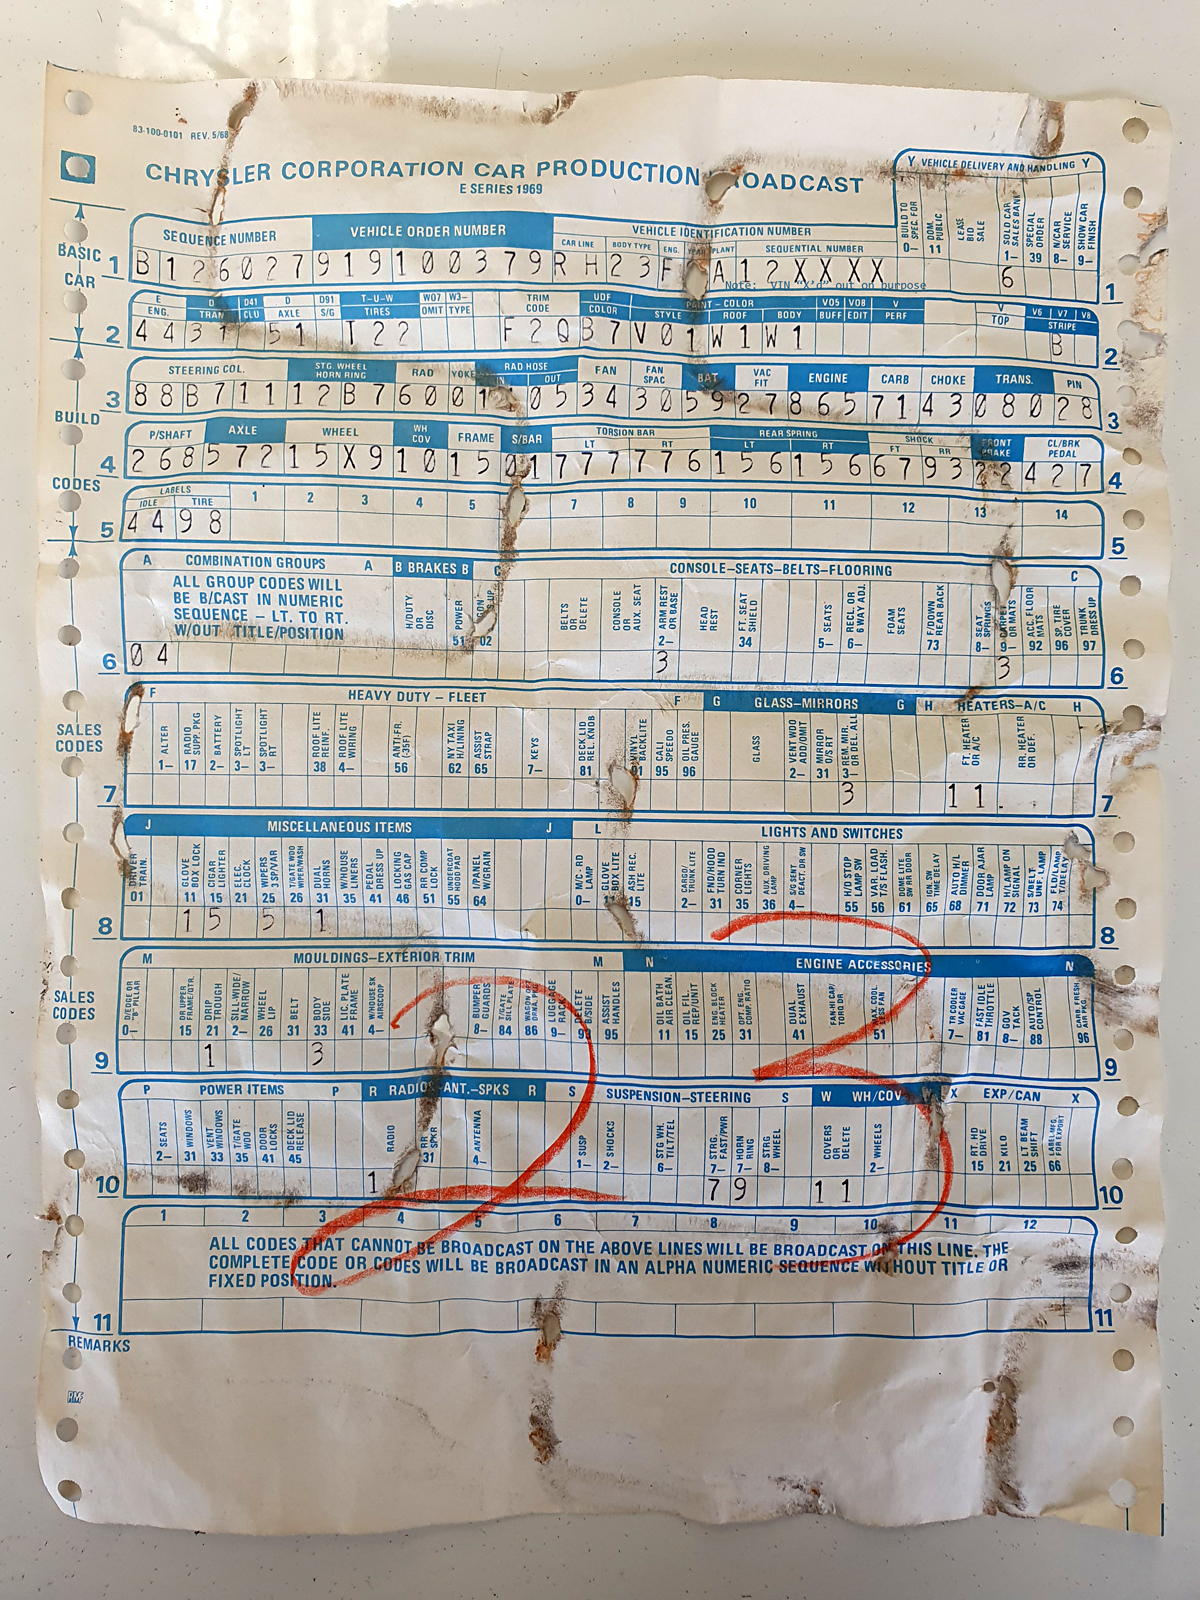 83-100-0101 REV. 5/68
CHRYSLER CORPORATION CAR PRODUCTION BROADCAST
E SERIES 1969
Y VEHICLE DELIVERY AND HANDLING Y
BUILD TO SPEC. FOR 0– DOM. PUBLIC 11 LEASE BID SALE SOLD CAR SALES BANK 1– SPECIAL ORDER 39 N/CAR SERVICE 8– SHOW CAR FINISH 9–
BASIC CAR
SEQUENCE NUMBER VEHICLE ORDER NUMBER VEHICLE IDENTIFICATION NUMBER
CAR LINE BODY TYPE ENG. PLANT SEQUENTIAL NUMBER
1 B126027 919100379 RH23F A12XXXX 6 1
Note: VIN "X'd" out on purpose
E ENG. D TRAN D41 CLU D AXLE D91 S/G T–U–W TIRES W07 OMIT W3– TYPE TRIM CODE UDF COLOR STYLE PAINT – COLOR ROOF BODY V05 BUFF V08 EDIT V PERF V TOP V6 V7 V8 STRIPE
2 4431 51 T22 F2QB7V01W1W1 B 2
BUILD CODES
STEERING COL. STG. WHEEL HORN RING RAD YOKE RAD HOSE IN OUT FAN FAN SPAC BAT VAC FIT ENGINE CARB CHOKE TRANS. PIN
3 88B71112B76001 0534305927865714308028 3
P/SHAFT AXLE WHEEL WH COV FRAME S/BAR TORSION BAR LT RT REAR SPRING LT RT SHOCK FT RR FRONT BRAKE CL/BRK PEDAL
4 26857215X9101501777776156156679322427 4
LABELS IDLE TIRE 1 2 3 4 5 7 8 9 10 11 12 13 14
5 4498 5
SALES CODES
A COMBINATION GROUPS A B BRAKES B C CONSOLE–SEATS–BELTS–FLOORING C
ALL GROUP CODES WILL
BE B/CAST IN NUMERIC
SEQUENCE – LT. TO RT.
W/OUT TITLE/POSITION
H/DUTY OR DISC POWER 51 02 BELTS OR DELETE CONSOLE OR AUX. SEAT ARM REST OR BASE 2– HEAD REST FT. SEAT SHIELD 34 SEATS 5– RECL. OR 6 WAY ADJ. 6– FOAM SEATS F/DOWN REAR BACK 73 SEAT SPRINGS 8– CARPET OR MATS 9– ACC. FLOOR MATS 92 SP. TIRE COVER 96 TRUNK DRESS UP 97
6 04 3 3 6
F HEAVY DUTY – FLEET F G GLASS–MIRRORS G H HEATERS–A/C H
ALTER 1– RADIO SUPP. PKG 17 BATTERY 2– SPOTLIGHT LT 3– SPOTLIGHT RT 3– ROOF LITE REINF. 38 ROOF LITE WIRING 4– ANTI-FR. (-35F) 56 NY TAXI H/LINING 62 ASSIST STRAP 65 KEYS 7– DECK LID REL. KNOB 81 VINYL BACKLITE 91 CALI SPEEDO 95 OIL PRES. GAUGE 96 GLASS VENT WDO ADD/OMIT 2– MIRROR O/S RT 31 REM. MIR. OR DEL. ALL 3– FT. HEATER OR A/C RR. HEATER OR DEF.
7 3 11 7
J MISCELLANEOUS ITEMS J L LIGHTS AND SWITCHES
DRIVER TRAIN. 01 GLOVE BOX LOCK 11 CIGAR LIGHTER 15 ELEC. CLOCK 21 WIPERS 3 SP/VAR 25 T/GATE WDO WIPER/WASH 26 DUAL HORNS 31 W/HOUSE LINERS 35 PEDAL DRESS UP 41 LOCKING GAS CAP 46 RR COMP LOCK 51 UNDERCOAT HOOD PAD 55 I/PANEL W/GRAIN 64 M/C–RD LAMP 0– GLOVE BOX LITE 11 ASH REC. LITE 15 CARGO/ TRUNK LITE 2– FND/HOOD TURN IND 31 CORNER LIGHTS 35 AUX. DRIVING LAMP 36 S/G SENT DEACT. DR SW 4– H/D STOP LAMP SW 55 VAR. LOAD T/S FLASH. 56 DOME LITE SW RR DOOR 61 IGN. SW TIME DELAY 65 AUTO H/L DIMMER 68 DOOR AJAR LAMP 71 H/LAMP ON SIGNAL 72 S/BELT UNF. LAMP 73 FLD/LAMP T/DELAY 74
8 1 5 5 1 8
SALES CODES
M MOULDINGS–EXTERIOR TRIM M N ENGINE ACCESSORIES N
D/EDGE OR "B" PILLAR 0– DR UPPER FRAME/QTR. 15 DRIP TROUGH 21 SILL-WIDE/ NARROW 2– WHEEL LIP 26 BELT 31 BODY SIDE 33 LIC. PLATE FRAME 41 W/HOUSE SK AIRSCOOP 4– BUMPER GUARDS 8– T/GATE SILL PLATE 84 86 LUGGAGE RACK 9– DELETE B/SIDE ASSIST HANDLES 95 OIL BATH AIR CLEAN. 11 OIL FIL REP/UNIT 15 ENG. BLOCK HEATER 25 OPT. ENG. COMP. RATIO 31 DUAL EXHAUST 41 FAN-CAP/ TORQ DR MAX. COOL LESS FAN 51 TR COOLER VAC GAGE 7– FAST IDLE THROTTLE 81 GOV TACK 8– AUTO/SP CONTROL 88 CARB. FRESH AIR PKG. 96
9 1 3 9
P POWER ITEMS P R RADIOS–ANT.–SPKS R S SUSPENSION–STEERING S W WH/COV W X EXP/CAN X
SEATS 2– WINDOWS 31 VENT WINDOWS 33 T/GATE WDO 35 DOOR LOCKS 41 DECK LID RELEASE 45 RADIO RR SPKR 31 ANTENNA 4– SUSP 1– SHOCKS 2– STG WH. TILT/TEL 6– STRG. FAST/PWR 7– HORN RING 7– STRG WHEEL 8– COVERS OR DELETE WHEELS 2– RT. HD DRIVE 15 KILO 21 LT BEAM SHIFT 25 LABEL-MFG. FOR EXPORT 66
10 1 7 9 11 10
1 2 3 4 5 6 7 8 9 10 11 12
ALL CODES THAT CANNOT BE BROADCAST ON THE ABOVE LINES WILL BE BROADCAST ON THIS LINE. THE
COMPLETE CODE OR CODES WILL BE BROADCAST IN AN ALPHA NUMERIC SEQUENCE WITHOUT TITLE OR
FIXED POSITION.
11 11
REMARKS
RMF
23